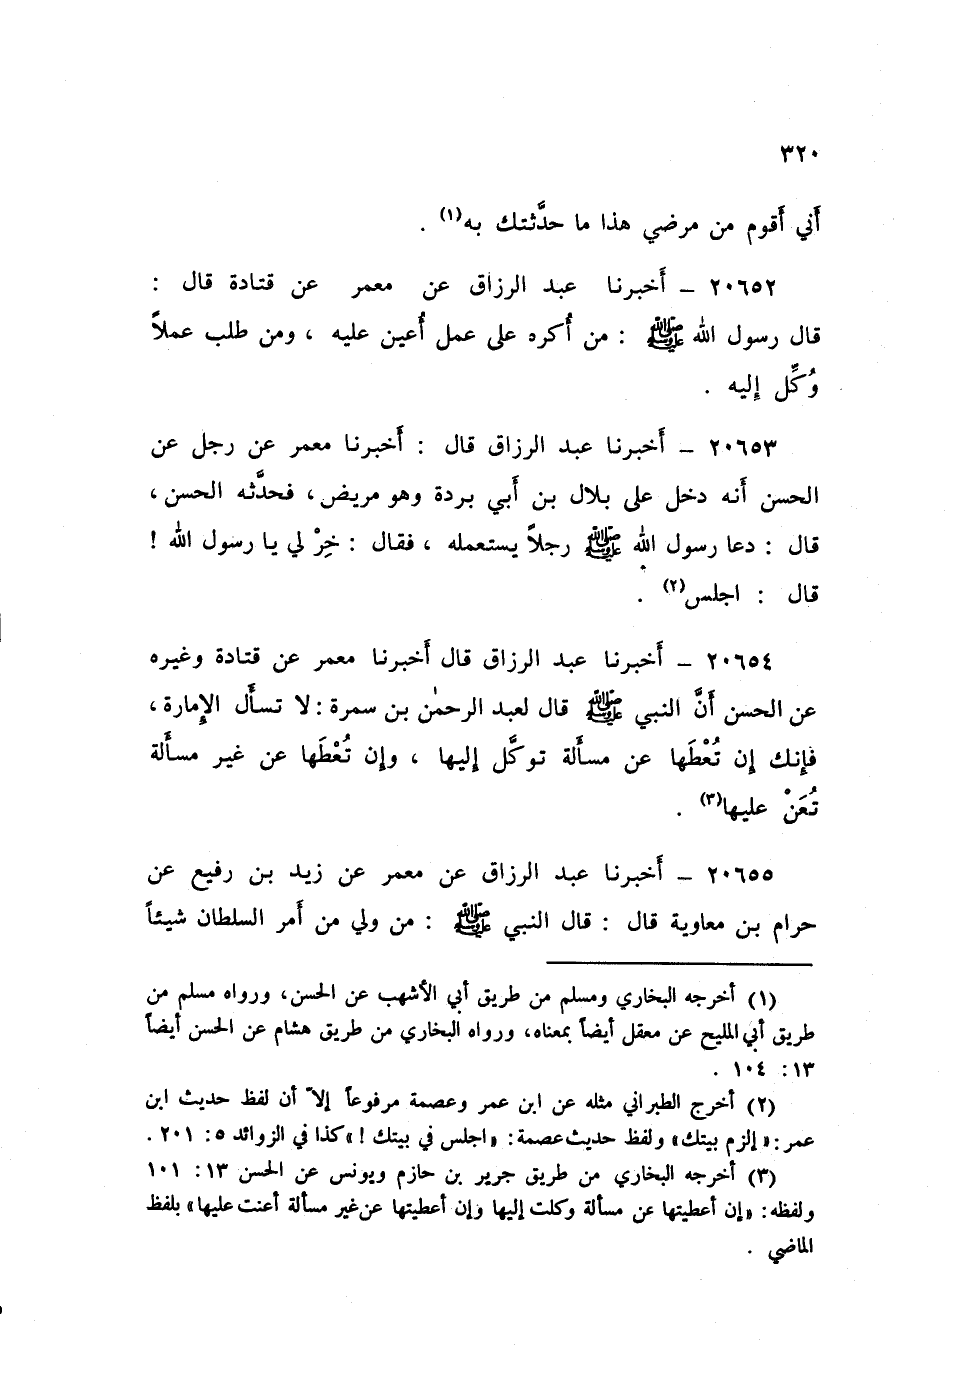 ٣٢٠
أَني أَقوم من مرضي هذا ما حدَّثتك به(١) .
٢٠٦٥٢ ــ أَخبرنا عبد الرزاق عن معمر عن قتادة قال :
قال رسول الله ﷺ : من أُكره على عمل أُعين عليه ، ومن طلب عملاً
وُكِّل إِليه .
٢٠٦٥٣ ــ أَخبرنا عبد الرزاق قال : أَخبرنا معمر عن رجل عن
الحسن أَنه دخل على بلال بن أَبي بردة وهو مريض ، فحدَّثه الحسن ،
قال : دعا رسول الله ﷺ رجلاً يستعمله ، فقال : خِرْ لي يا رسول الله !
قال : اجلس(٢) .
٢٠٦٥٤ ــ أَخبرنا عبد الرزاق قال أَخبرنا معمر عن قتادة وغيره
عن الحسن أَنَّ النبي ﷺ قال لعبد الرحمٰن بن سمرة : لا تسأَل الإِمارة ،
فإِنك إِن تُعْطَها عن مسأَلة توكَّل إِليها ، وإِن تُعْطَها عن غير مسأَلة
تُعَنْ عليها(٣) .
٢٠٦٥٥ ــ أَخبرنا عبد الرزاق عن معمر عن زيد بن رفيع عن
حرام بن معاوية قال : قال النبي ﷺ : من ولي من أَمر السلطان شيئاً
(١) أخرجه البخاري ومسلم من طريق أبي الأشهب عن الحسن، ورواه مسلم من
طريق أبي المليح عن معقل أيضاً بمعناه، ورواه البخاري من طريق هشام عن الحسن أيضاً
١٣: ١٠٤ .
(٢) أخرج الطبراني مثله عن ابن عمر وعصمة مرفوعاً إلاّ أن لفظ حديث ابن
عمر: «إلزم بيتك» ولفظ حديث عصمة: «اجلس في بيتك !» كذا في الزوائد ٥: ٢٠١ .
(٣) أخرجه البخاري من طريق جرير بن حازم ويونس عن الحسن ١٣: ١٠١
ولفظه: «إن أعطيتها عن مسألة وكلت إليها وإن أعطيتها عن غير مسألة أعنت عليها» بلفظ
الماضي .